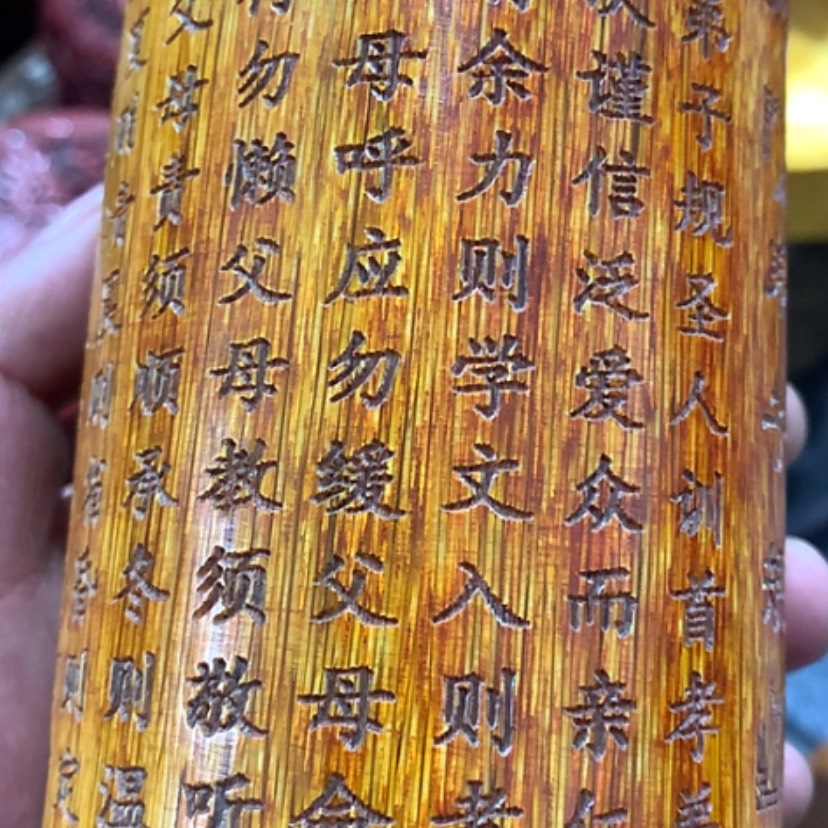 弟子规圣人训首孝弟
谨信泛爱众而亲仁
余力则学文入则孝
母呼应勿缓父母命
行勿懒父母教须敬听
父母责须顺承冬则温
则晨则省昏则定